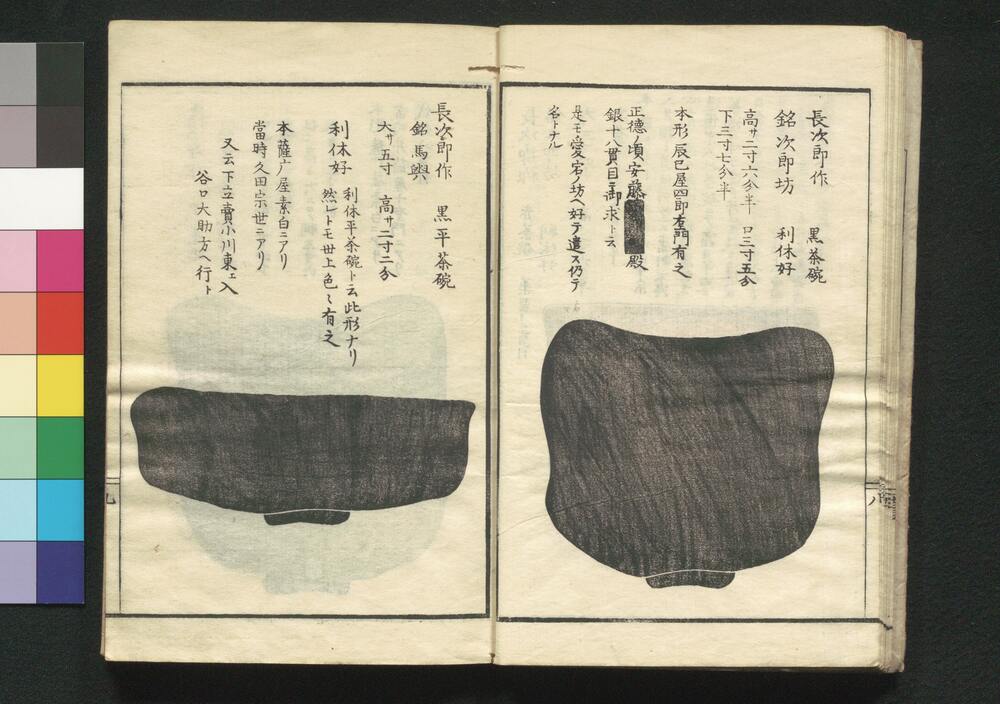 長次郎作　黒茶碗
銘次郎坊　利休好
高サ二寸六分半　口三寸五分
下三寸七分半
本形辰巳屋四郎右衛門有之
正徳ノ頃安藤　殿
銀十八貫目ニ御求ト云
是モ愛宕ノ坊ヘ好テ遣ス仍テ
名トナル
八
長次郎作　黒平茶碗
銘馬輿
大サ五寸　高サ二寸二分
利休好　利休平茶碗ト云此形ナリ
然レトモ世上色々有之
本薩广屋素白ニアリ
當時久田宗世ニアリ
又云下立賣小川東ェ入
谷口大助方ヘ行ト
九